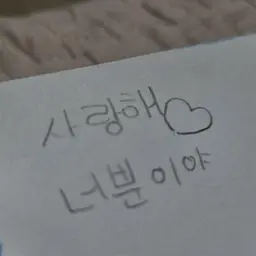 사랑해♡
너뿐이야